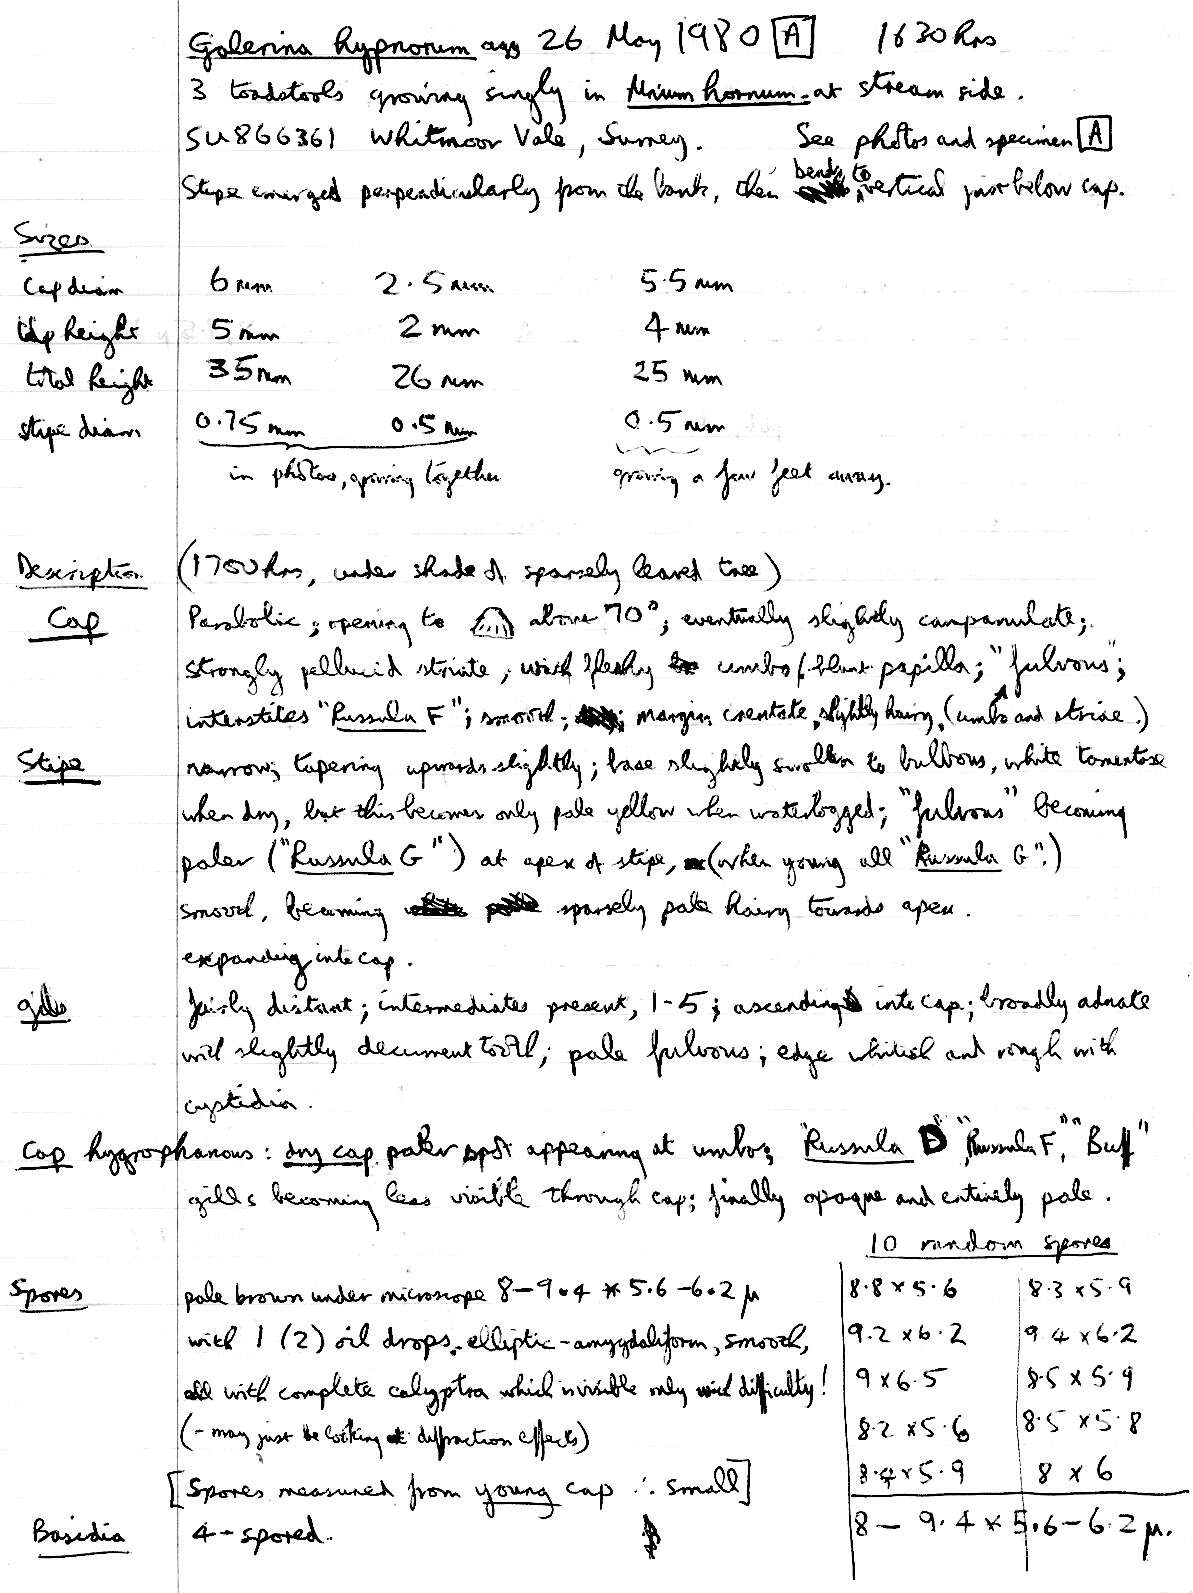 Galerina hypnorum agg 26 May 1980 [A] 1630hrs
3 toadstools growing singly in Mnium hornum - at stream side.
SU866361 Whitmoor Vale, Surrey. See photos and specimen [A]
Stipe emerged perpendicularly from the bank, then bends to vertical just below cap.
Sizes
Cap diam 6mm 2.5mm 5.5mm
Cap height 5mm 2mm 4mm
total height 35mm 26mm 25mm
stipe diam 0.75mm 0.5mm 0.5mm
in photos, growing together growing a few feet away.
Description (1700hrs, under shade of sparsely leaved tree)
Cap Parabolic; opening to above 70°; eventually slightly campanulate;
strongly pellucid striate, with fleshy umbo/blunt papilla; "fulvous";
interstites "Russula F"; smooth; margin crentate, slightly hairy, (umbo and striae.)
Stipe narrow; tapering upwards slightly; base slightly swollen to bulbous, white tomentose
when dry, but this becomes only pale yellow when waterlogged; "fulvous" becoming
paler ("Russula G") at apex of stipe, (when young all "Russula G".)
smooth, becoming sparsely pale hairy towards apex.
expanding into cap.
gills fairly distant; intermediates present, 1-5; ascending into cap; broadly adnate
with slightly decurrent tooth; pale fulvous; edge whitish and rough with
cystidia.
Cap hygrophanous: dry cap paler spot appearing at umbo; "Russula D", "Russula F", "Buff"
gills becoming less visible through cap; finally opaque and entirely pale.
10 random spores
Spores pale brown under microscope 8-9.4 × 5.6-6.2 µ 8.8×5.6 8.3×5.9
with 1 (2) oil drops, elliptic-amygdaliform, smooth, 9.2×6.2 9.4×6.2
all with complete calyptra which is visible only with difficulty! 9×6.5 8.5×5.9
(- may just be looking at diffraction effects) 8.2×5.6 8.5×5.8
[Spores measured from young cap ∴ small] 8.4×5.9 8×6
Basidia 4-spored. 8-9.4×5.6-6.2 µ.